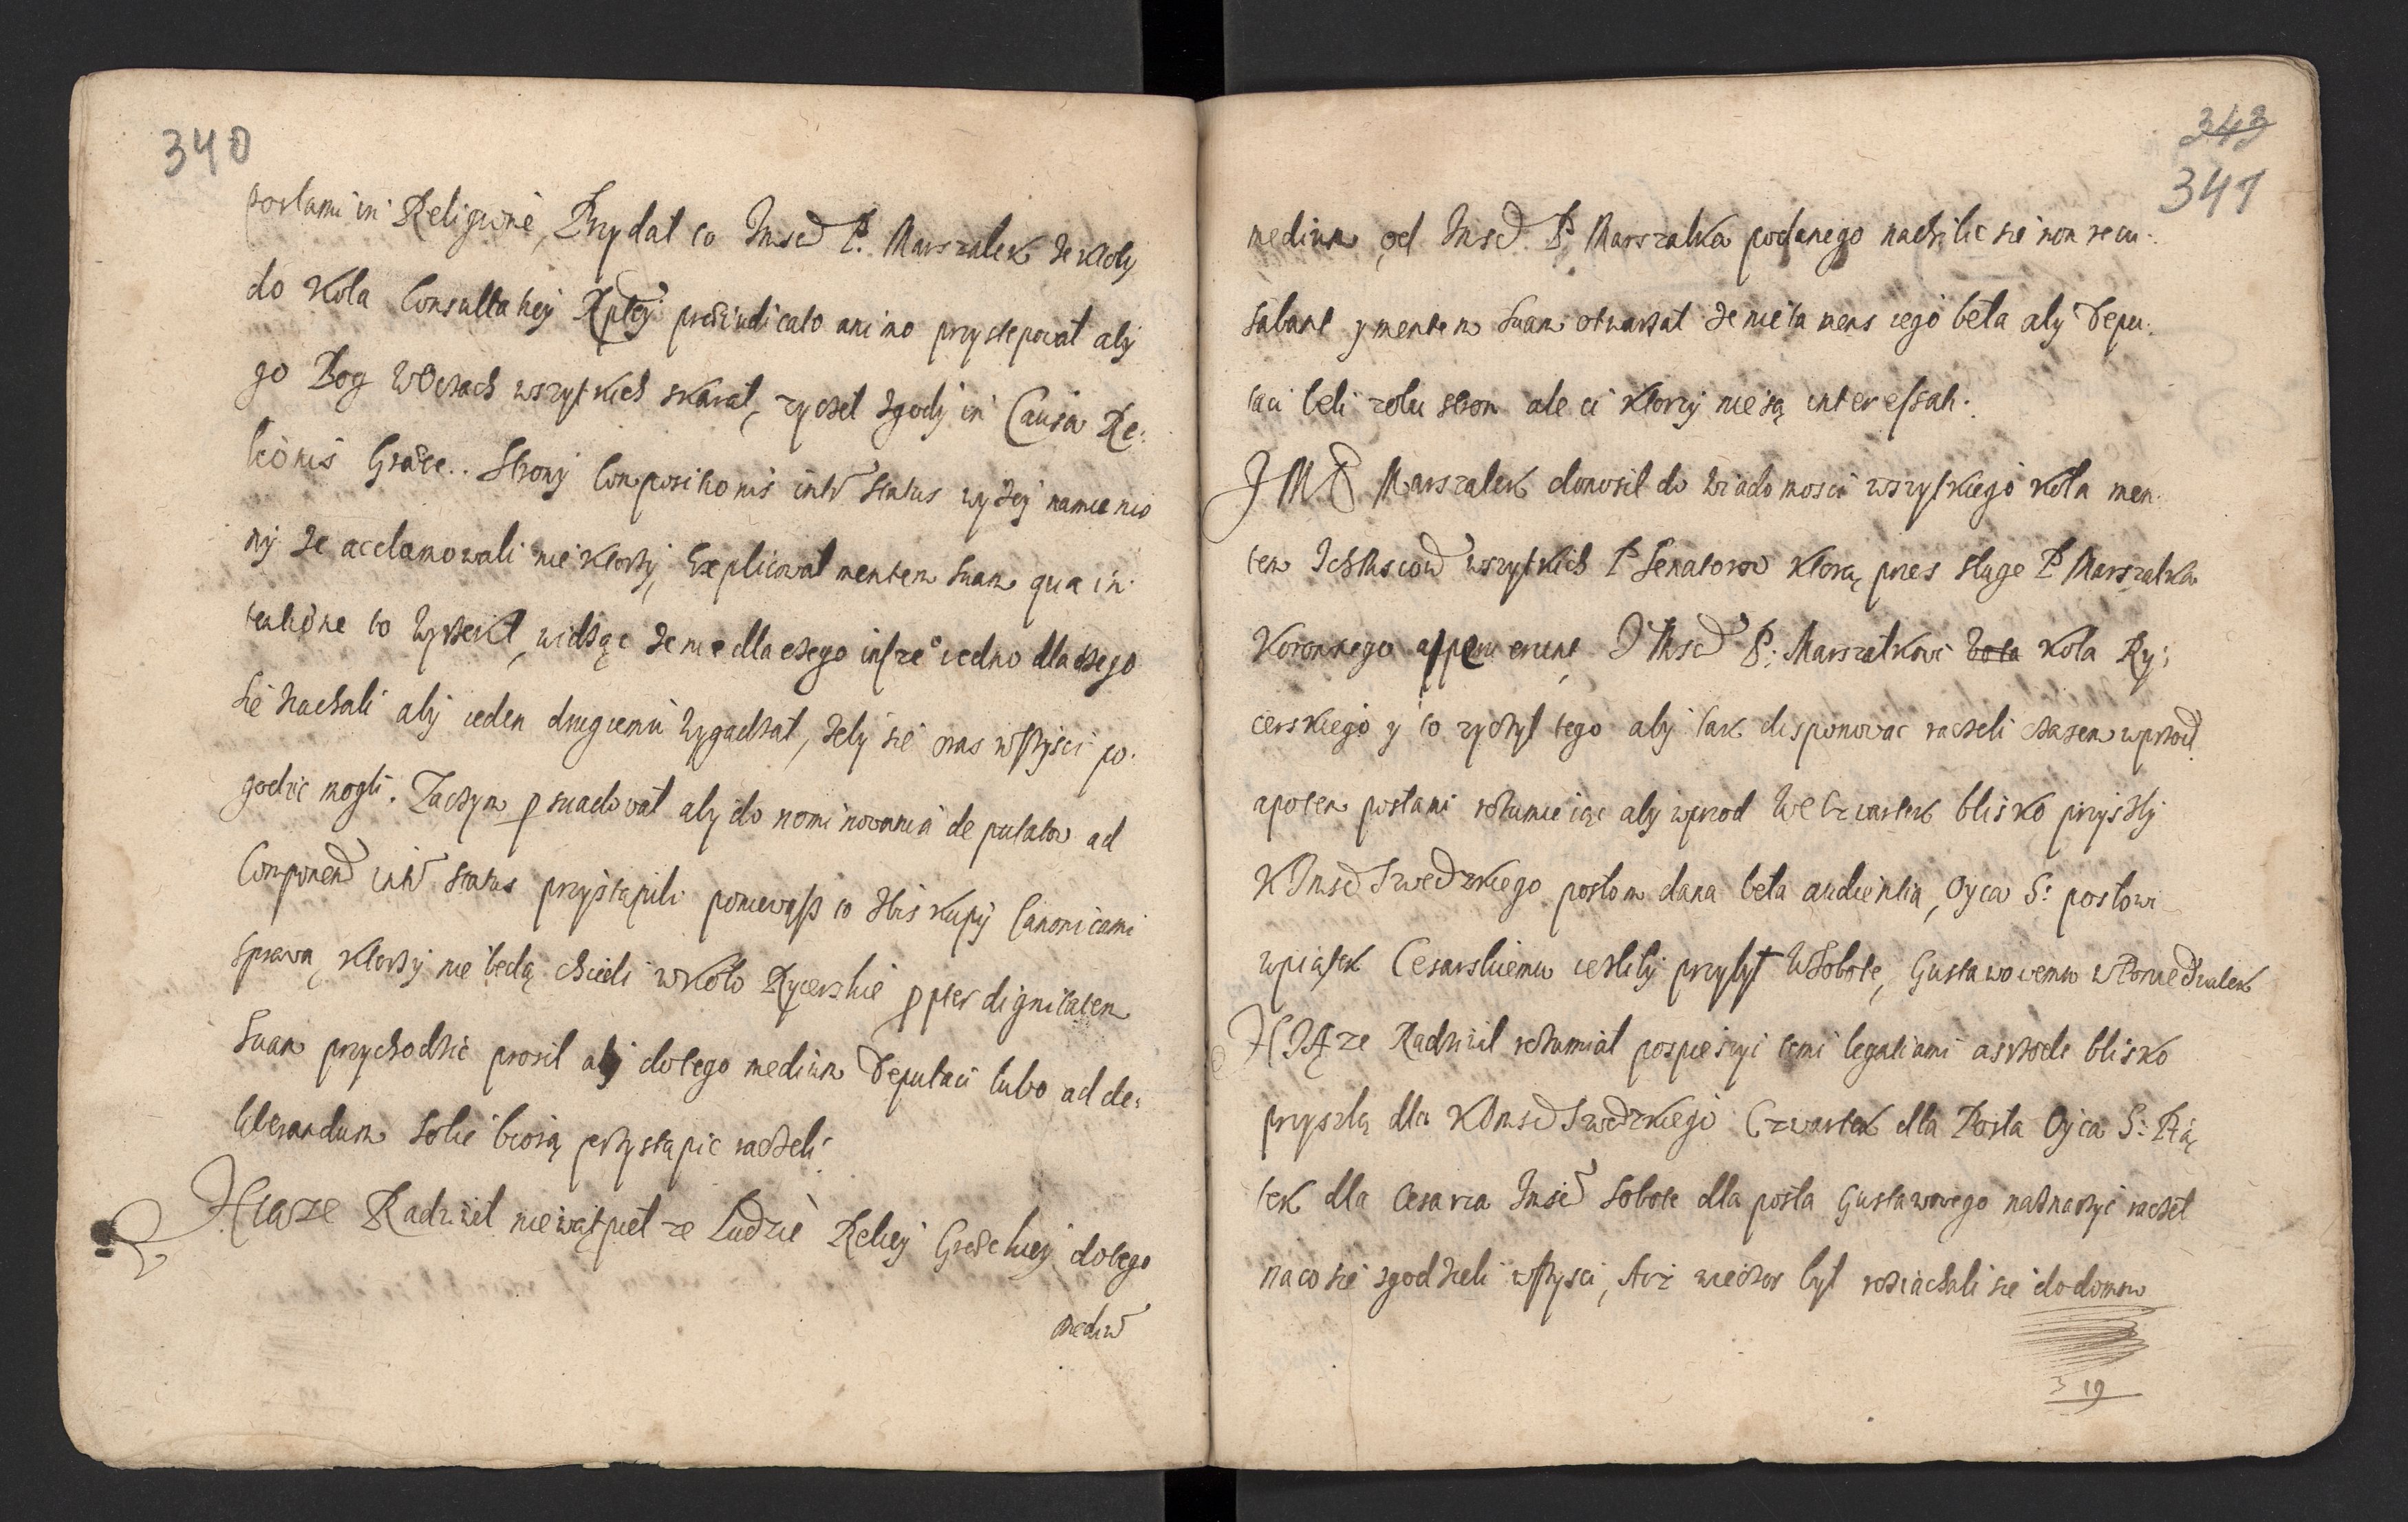 340
posłami in Religione, Przydał co Jmsć P. Marszałek że kiedy
do Koła Consultaticy Rptey praeiudicato animo przystepował aby
go Bog w Oczach wszytkich skarał, zyczeł zgody in Causa Re:
lionis Graece. Strony Compositionis inter status wyżey namienio
ny że acclamowali niektorzy, Explicował mentem suam qua in
tentione to wyrzekł, widząc że nie dla czego insze° iedno dla tego
sie ziachali aby ieden drugiemu wygadzał, żeby sie nas wszyscy po:
godzic mogli. Zaczym psuadował aby do nominowania deputatow ad
Componend inter status przystąpili poniewasz to Biskupy Canonicami
sprawa, ktorzy nie będą chcieli w Koło Rycerskie ppter dignitatem
suam przychodzic prosił aby do tego medium Deputaci lubo ad de:
liberandum sobie biorą przystąpic raczeli.
Xiąze Radziwił niewątpieł ze Ludzie Reliey Graeckiey do tego
medium
343
341
medium od Jmsć P. Marszałka podanego nachilic sie non recu:
sabant y mentem suam otwarzał że nie ta mens iego beła aby Depu:
taci beli z obu stron ale ci ktorzy nie są interessati.
JMP Marszałek donosił do wiadomosci wszytkiego koła men
tem Ichmsciow wszytkich P Senatorow ktorą przes sługe P Marszałka
Koronnego aperuerunt JMsć P. Marszałkowi koła Ry:
cerskiego y to zyczył tego aby tak disponowac raczeli czasem wprzod
a potem posłami rozumieiąc aby wprzod we Czwartek blisko przyszły
KJmsć Swedzkiego posłom dana beła audientia, Oyca S: posłowi
w piątek Cesarskiemu iesliby przybył w Sobote, Gustawowemu w Poniedziałek
XIĄze Radziwił rozumiał pospieszyc temi legatiami a srzode blisko
przyszłą dla KJmsć Swedzkiego Czwartek dla Posła Oyca S: Pią
tek dla Cesarza Jmsć Sobote dla posła Gustawowego naznaczyc raczeł
na co sie zgodzieli wszyscy, A iż wieczor był roziachali sie do domow
319